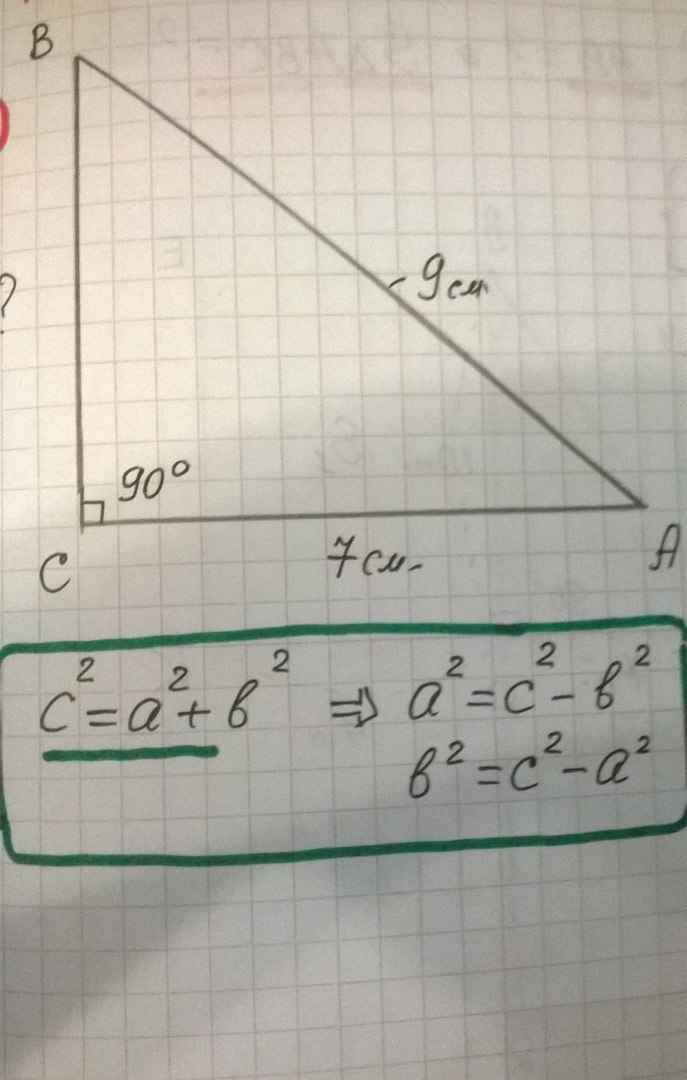 B
9 см
?
90°
C
7 см.
A
c² = a² + в² ⇒ a² = c² - в²
в² = c² - a²